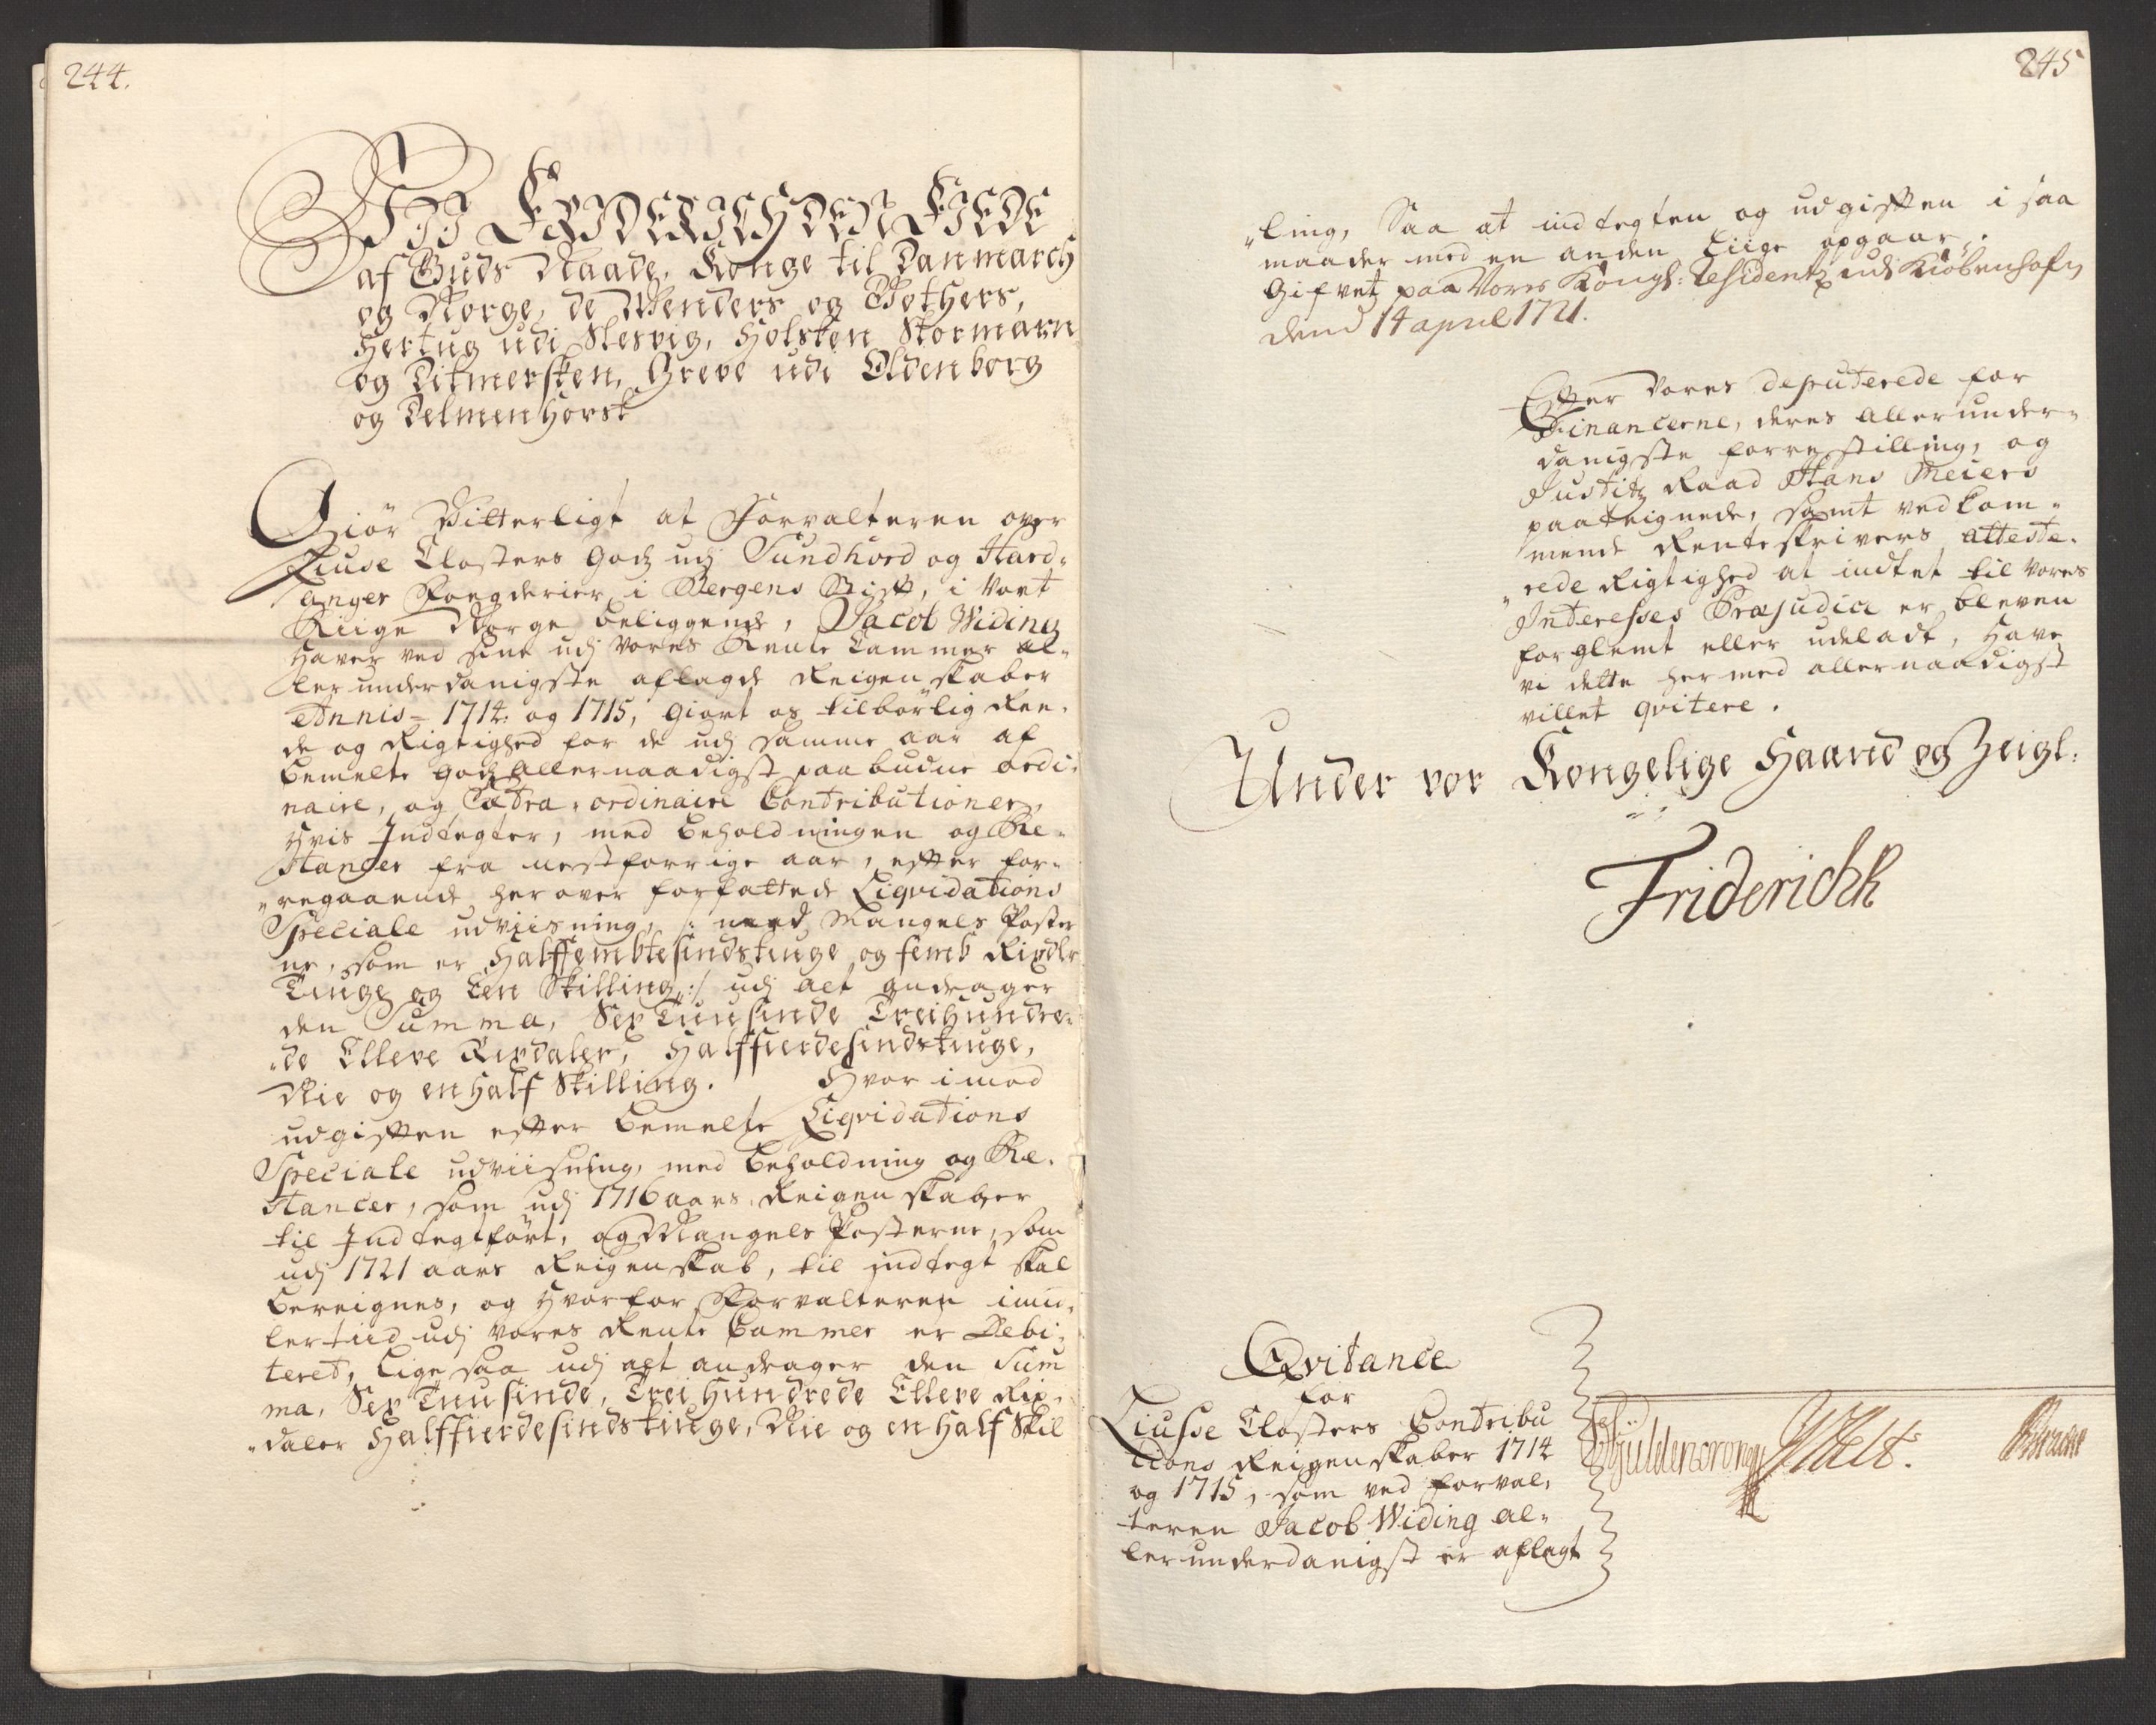 244.
Wii Friderich den Fierde
af Guds Naade, Konge til Danmarch
og Norge, de Wenders og Gothers,
Hertug udi Slesvig, Holsten Stormarn
og Ditmersken, Greve udi Oldenborg
og Delmenhorst
Giör Vitterligt at Forvalteren over
Liuse Closters Godz udj Sundhord og Hard-
anger Fougderier i Bergens Stift, i Vort
Riige Norge beliggende, Jacob Widing
haver ved sine udj Vores Rente Cammer al-
lerunderdanigste aflagde Reigenskaber
Annis- 1714. og 1715, giort os tilbörlig Ree-
de og Rigtighed for de udj samme aar af
bemelte Godz allernaadigst paabudne ordi-
naire, og Extra-ordinaire Contributioner,
Hvis Indtegter, med beholdningen og Re-
stancer fra nestforrige aar, efter for-
"regaaende herover forfattede Liqvidations
Speciale udviisning, /: med Mangels Poster
ne, som er Halffembtesindstiuge og femb Rixdlr
Tiuge og Een Skilling :/ udj alt andrager
den Summa, Sex Tuusinde Treihundre-
"de Elleve Rixdaler, Halffierdesindstiuge,
Nie og en half Skilling. Hvor imod
udgiften efter bemelte Liqvidations
Speciale udviisning, med beholdning og Re-
stancer, som udj 1716 aars Reigenskaber
til Indtegt fört, og Mangels Posterne, som
udj 1721 aars Reigenskab, til indtegt skal
bereignes, og hvorfor Forvalteren imid-
lertiid udj Vores Rente Cammer er Debi-
teret, lige saa udj alt andrager den Sum
ma, Sex Tuusinde, Trei Hundrede Elleve Rix-
"daler Halffierdesindstiuge, Nie og en half Skil
245
"ling, Saa at indtegten og udgiften i saa
maader med en anden liige opgaar.
Gifvet paa Vores Kongl: Residentz udi Kiöbenhafn
dend 14 april 1721.
Efter Vores deputerede for
Financerne, deres allerunder-
danigste forrestilling, og
Justitz Raad Hans Meiers
paateignede, samt vedkom-
mende Renteskrivers atteste-
"rede Rigtighed at indtet til Vores
Interesses Præjudice er bleven
forglemt eller udeladt, Have
vi dette hermed allernaadigst
villet qvitere.
Under vor Kongelige Haand og Zeigl:
Friderich R
Qvitance
for
Liusse Closters Contribu
tions Reigenskaber 1714
og 1715, som ved Forval-
teren Jacob Widing al-
lerunderdanigst er aflagt